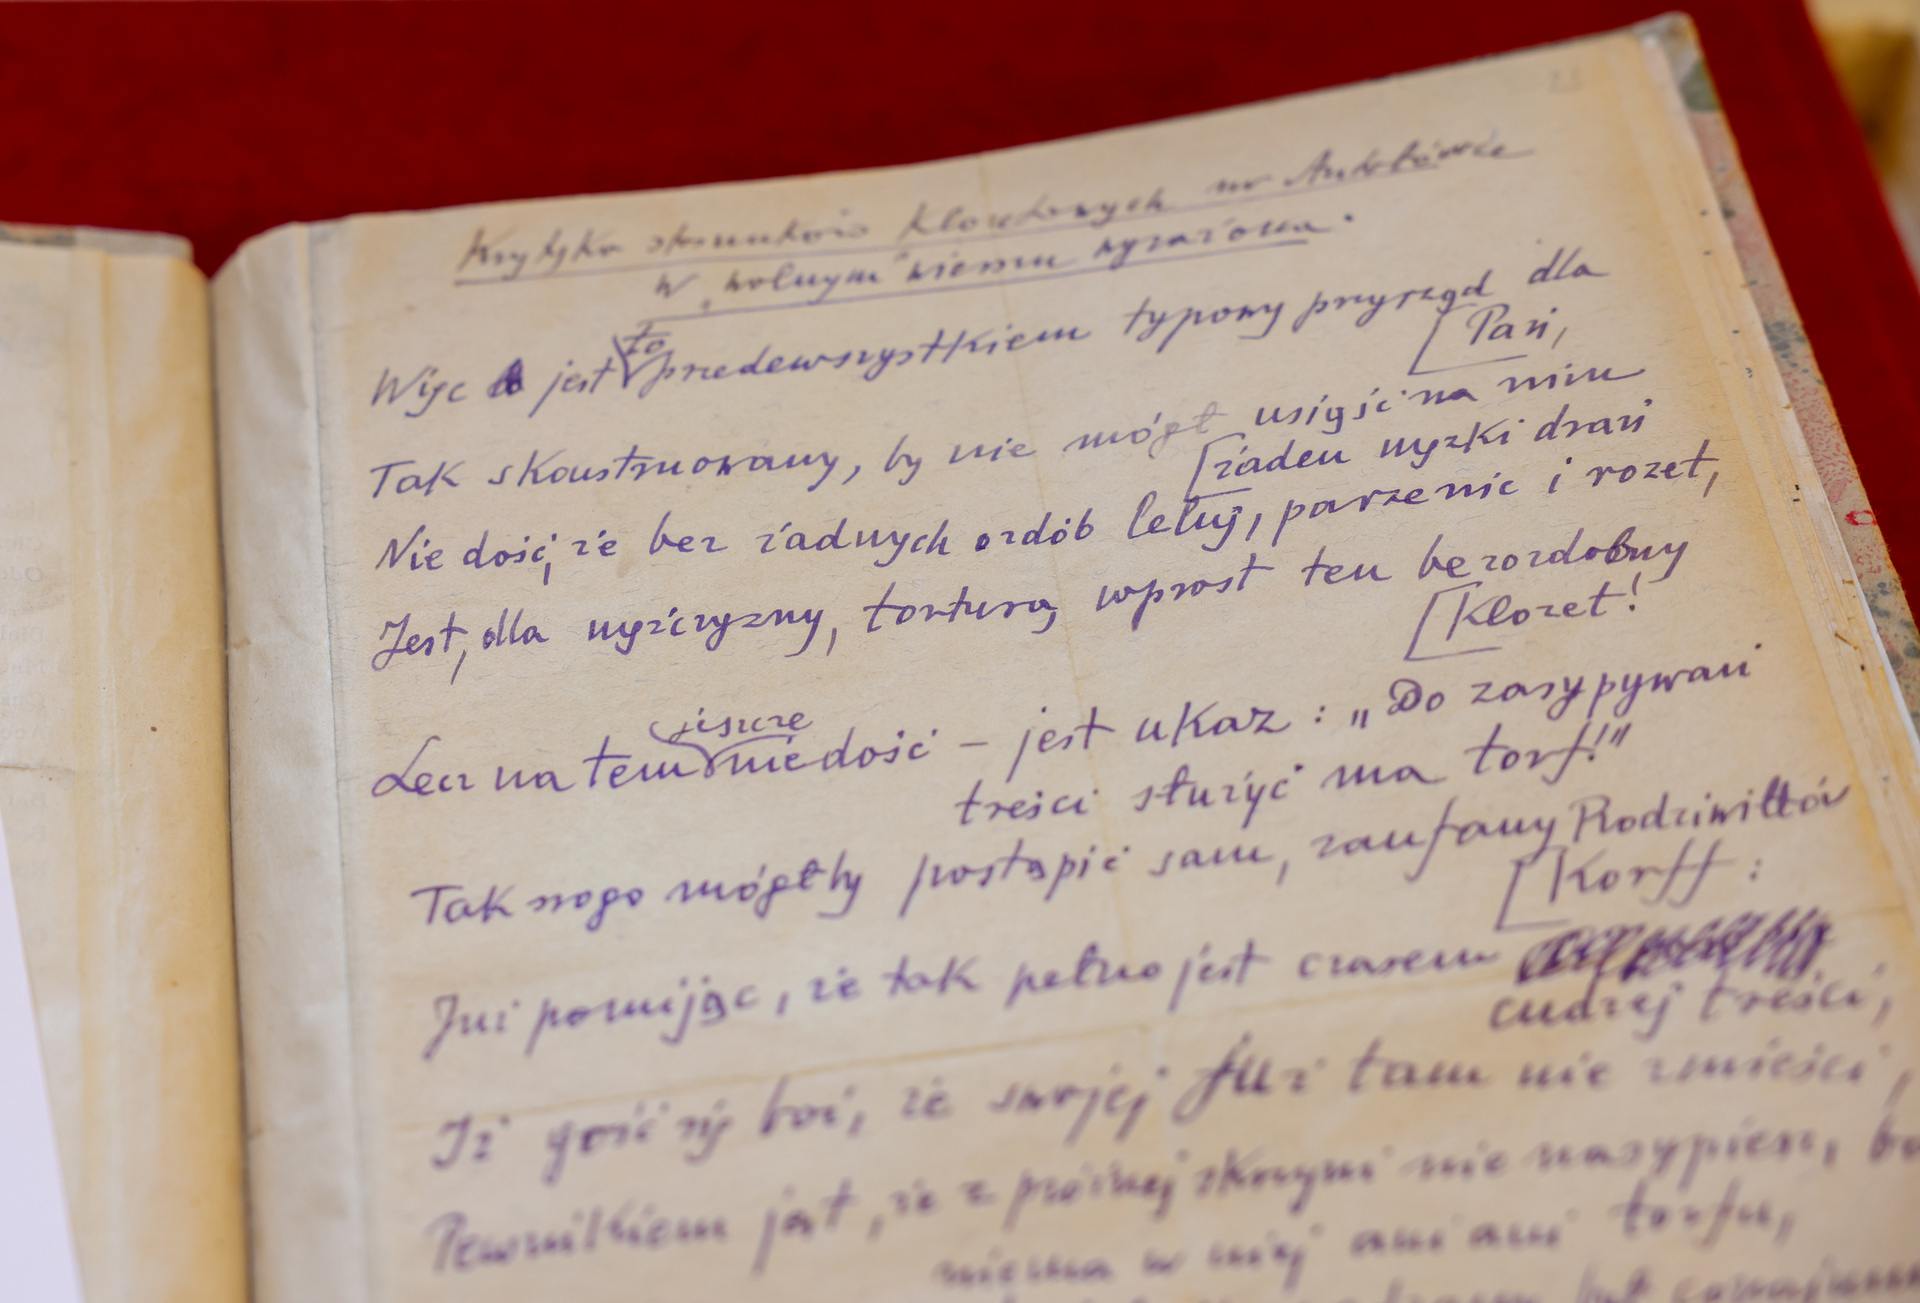 Krytyka stosunków klozetowych na Antołówce
W „wolnym" wierszu wyrażona.
Więc jest to przedewszystkiem typowy przyrząd dla
[Pań,
Tak skonstruowany, by nie mógł usiąść na nim
[żaden męzki drań
Nie dość, że bez żadnych ozdób leluj, parzenic i rozet,
Jest, dla mężczyzny, torturą wprost ten bezozdobny
[Klozet!
Lecz na tem jeszcze niedość – jest ukaz : „Do zasypywań
treści służyć ma torf!"
Tak srogo mógłby postąpić sam, zaufany Radziwiłłów
[Korff :
Już pomijąc, że tak pełno jest czasem
cudzej treści,
Iż gość się boi, że swojej już tam nie zmieści,
Pewnikiem jest, że z próżnej skrzyni nie nasypiesz, bo
niema w niej ani ani torfu,